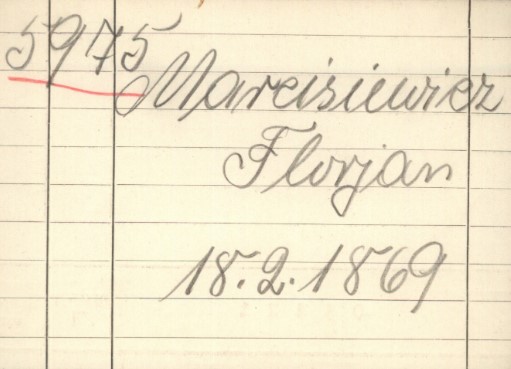 5975
Marcisiewicz
Florjan
18.2.1869